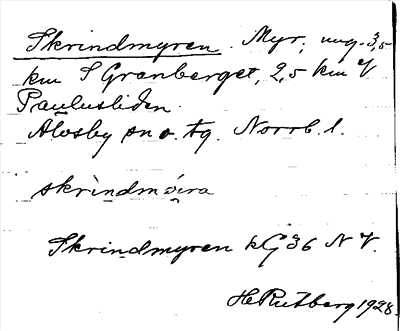 Skrindmyren. Myr, ung. 3,5
km S Granberget, 2,5 km V
Paulusliden.
Älvsby sn o. tg. Norrb. l.
skrìndmöira
Skrindmyren kG36 N V.
H Rutberg 1928